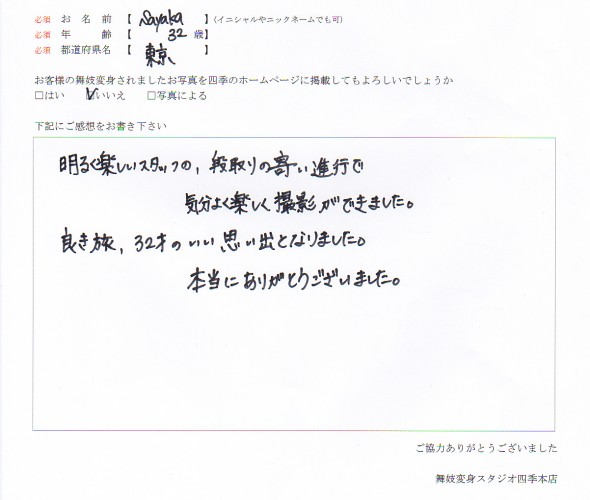 必須 お名前【 Sayaka 】(イニシャルやニックネームでも可)
必須 年齢【 32 歳】
必須 都道府県名【 東京 】
お客様の舞妓変身されましたお写真を四季のホームページに掲載してもよろしいでしょうか
□はい ☑いいえ □写真による
下記にご感想をお書き下さい
明るく楽しいスタッフの、段取りの寄い進行で
気分よく楽しく撮影ができました。
良き旅、32才のいい思い出となりました。
本当にありがとうございました。
ご協力ありがとうございました
舞妓変身スタジオ四季本店